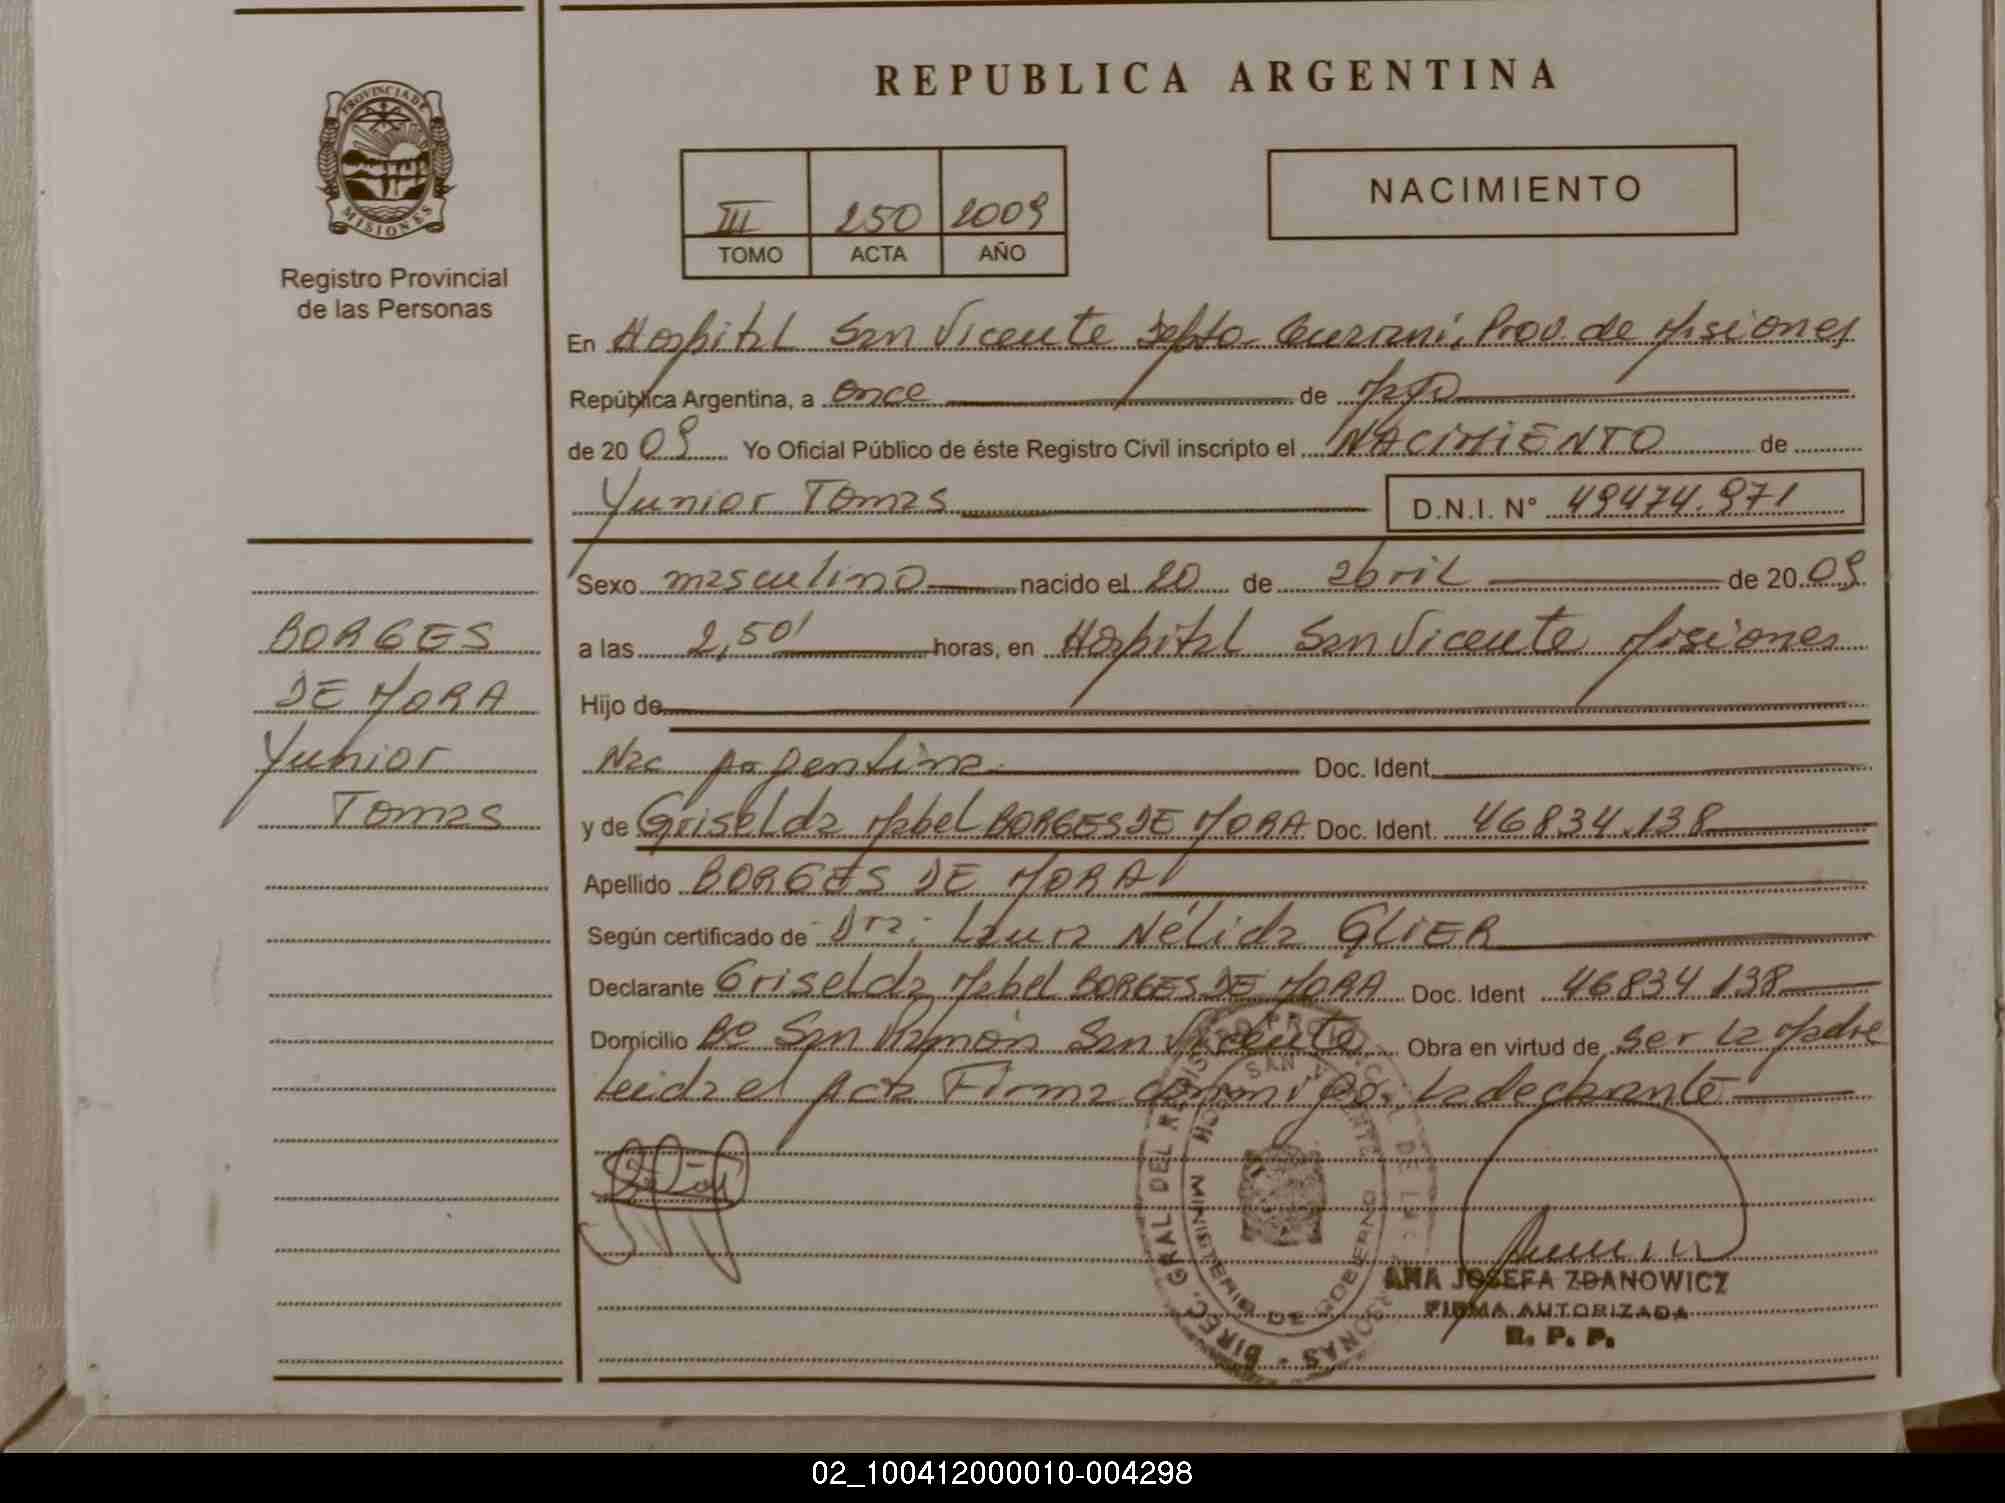 REPUBLICA ARGENTINA
PROVINCIA DE
MISIONES
Registro Provincial
de las Personas
III 250 2009
TOMO ACTA AÑO
NACIMIENTO
En Hospital San Vicente Depto Guarani, Prov. de Misiones
República Argentina, a once de Mayo
de 2009 Yo Oficial Público de éste Registro Civil inscripto el NACIMIENTO de
Yunior Tomas D.N.I. N° 49474.971
Sexo masculino nacido el 20 de abril de 2009
a las 2,50' horas, en Hospital San Vicente Misiones
Hijo de
Nac Argentina Doc. Ident.
y de Griselda Mabel BORGES DE MORA Doc. Ident. 46834.138
Apellido BORGES DE MORA
Según certificado de Dra: Laura Nélida GLIER
Declarante Griselda Mabel BORGES DE MORA Doc. Ident 46834.138
Domicilio Bº San Ramón San Vicente Obra en virtud de ser la Madre
Leida el Acta Firma conmigo la declarante
BORGES
DE MORA
Yunior
Tomas
DIREC. GRAL DEL REGISTRO PROVINCIAL DE LAS PERSONAS
HOSP. SAN VICENTE
MINISTERIO DE GOBIERNO
ANA JOSEFA ZDANOWICZ
FIRMA AUTORIZADA
R. P. P.
02_100412000010-004298